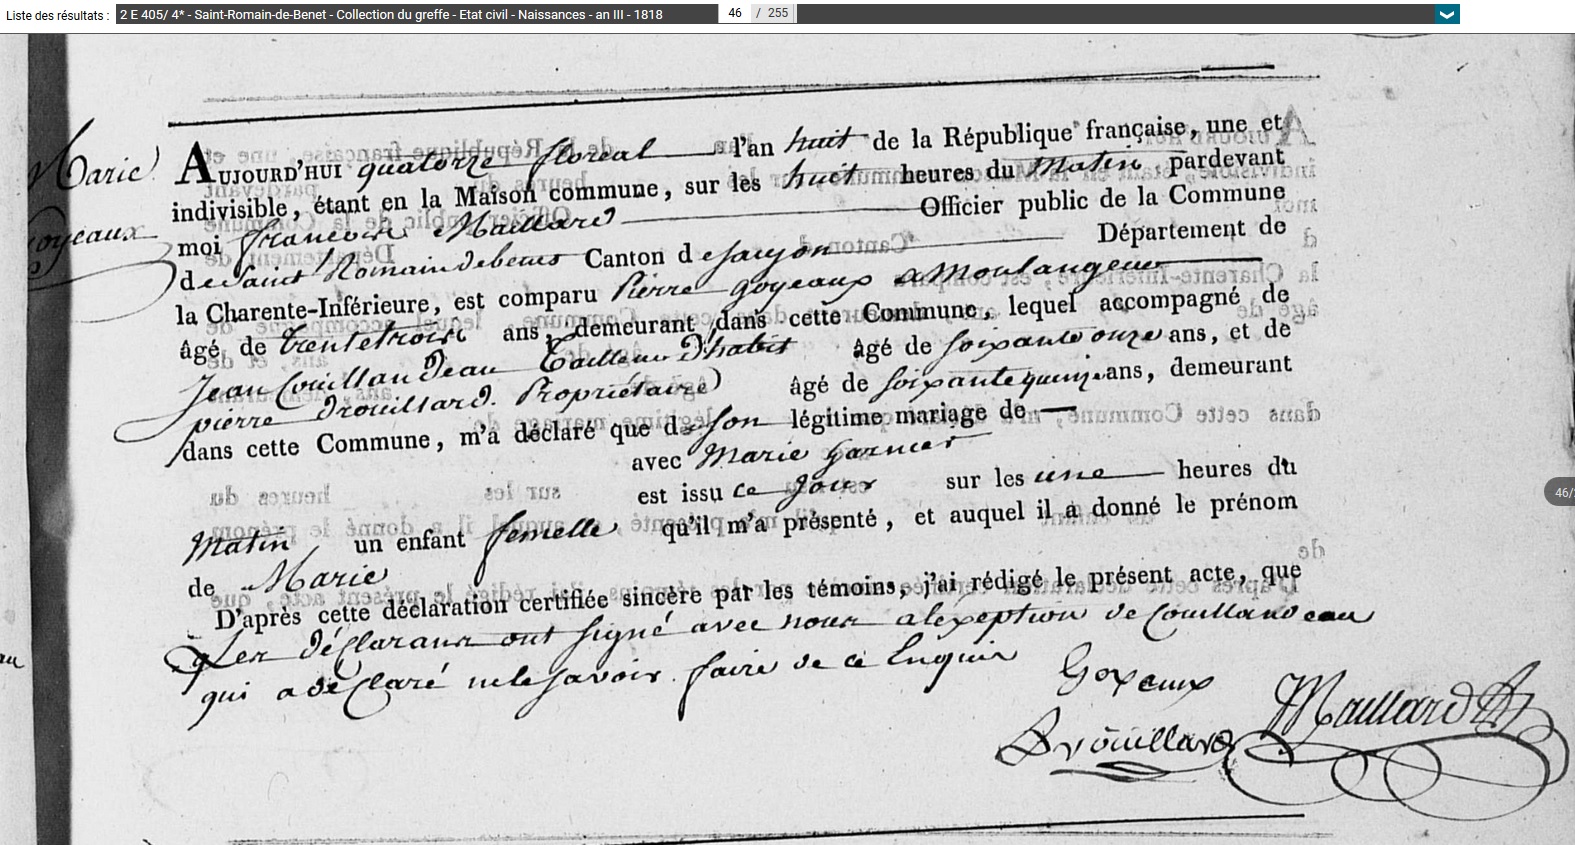 Liste des résultats : 2 E 405/ 4* - Saint-Romain-de-Benet - Collection du greffe - Etat civil - Naissances - an III - 1818 46 / 255
Marie
goyeaux
AUJOURD'HUI quatorze floreal l'an huit de la République française, une et
indivisible, étant en la Maison commune, sur les huit heures du Matin pardevant
moi francois Maillard Officier public de la Commune
de Saint Romain debenes Canton de saujon Département de
la Charente-Inférieure, est comparu Pierre goyeaux a Moulangeur
âgé de trentetrois ans, demeurant dans cette Commune, lequel accompagné de
Jean Couillandeau Tailleur Dhabit âgé de soixante onze ans, et de
pierre Drouillard. Propriétaire âgé de soixante quinze ans, demeurant
dans cette Commune, m'a déclaré que de son légitime mariage de
avec Marie garnier
est issu ce jour sur les une heures du
Matin un enfant femelle qu'il m'a présenté, et auquel il a donné le prénom
de Marie
D'après cette déclaration certifiée sincère par les témoins, j'ai rédigé le présent acte, que
Les déclarans ont signé avec nous a lexeption de Couillandeau
qui a déclaré ne le savoir faire de ce Enquis
Goyeaux
Maillard
Drouillard
46/